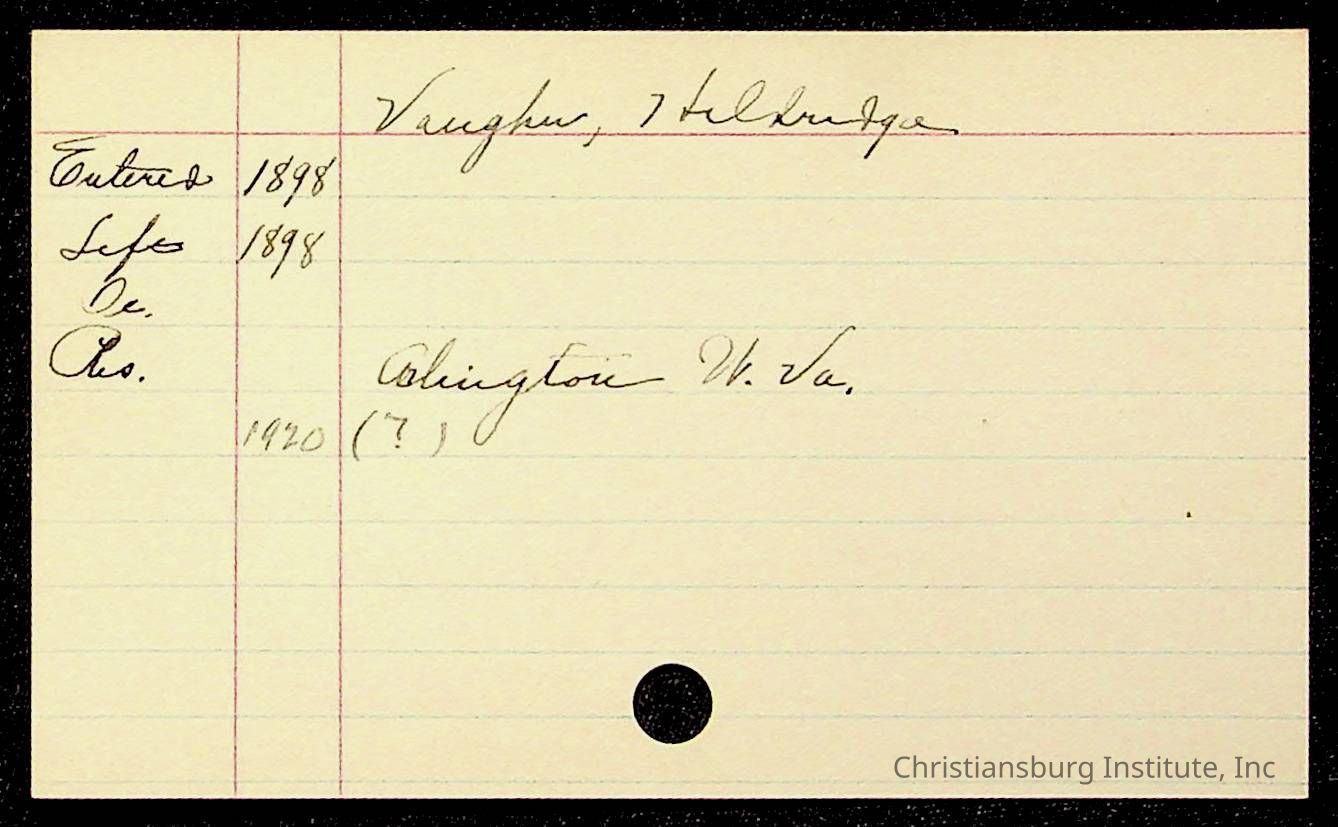 Vaughn, Heldridge
Entered 1898
Left 1898
Oc.
Res. Arlington W. Va.
1920 (?)
Christiansburg Institute, Inc